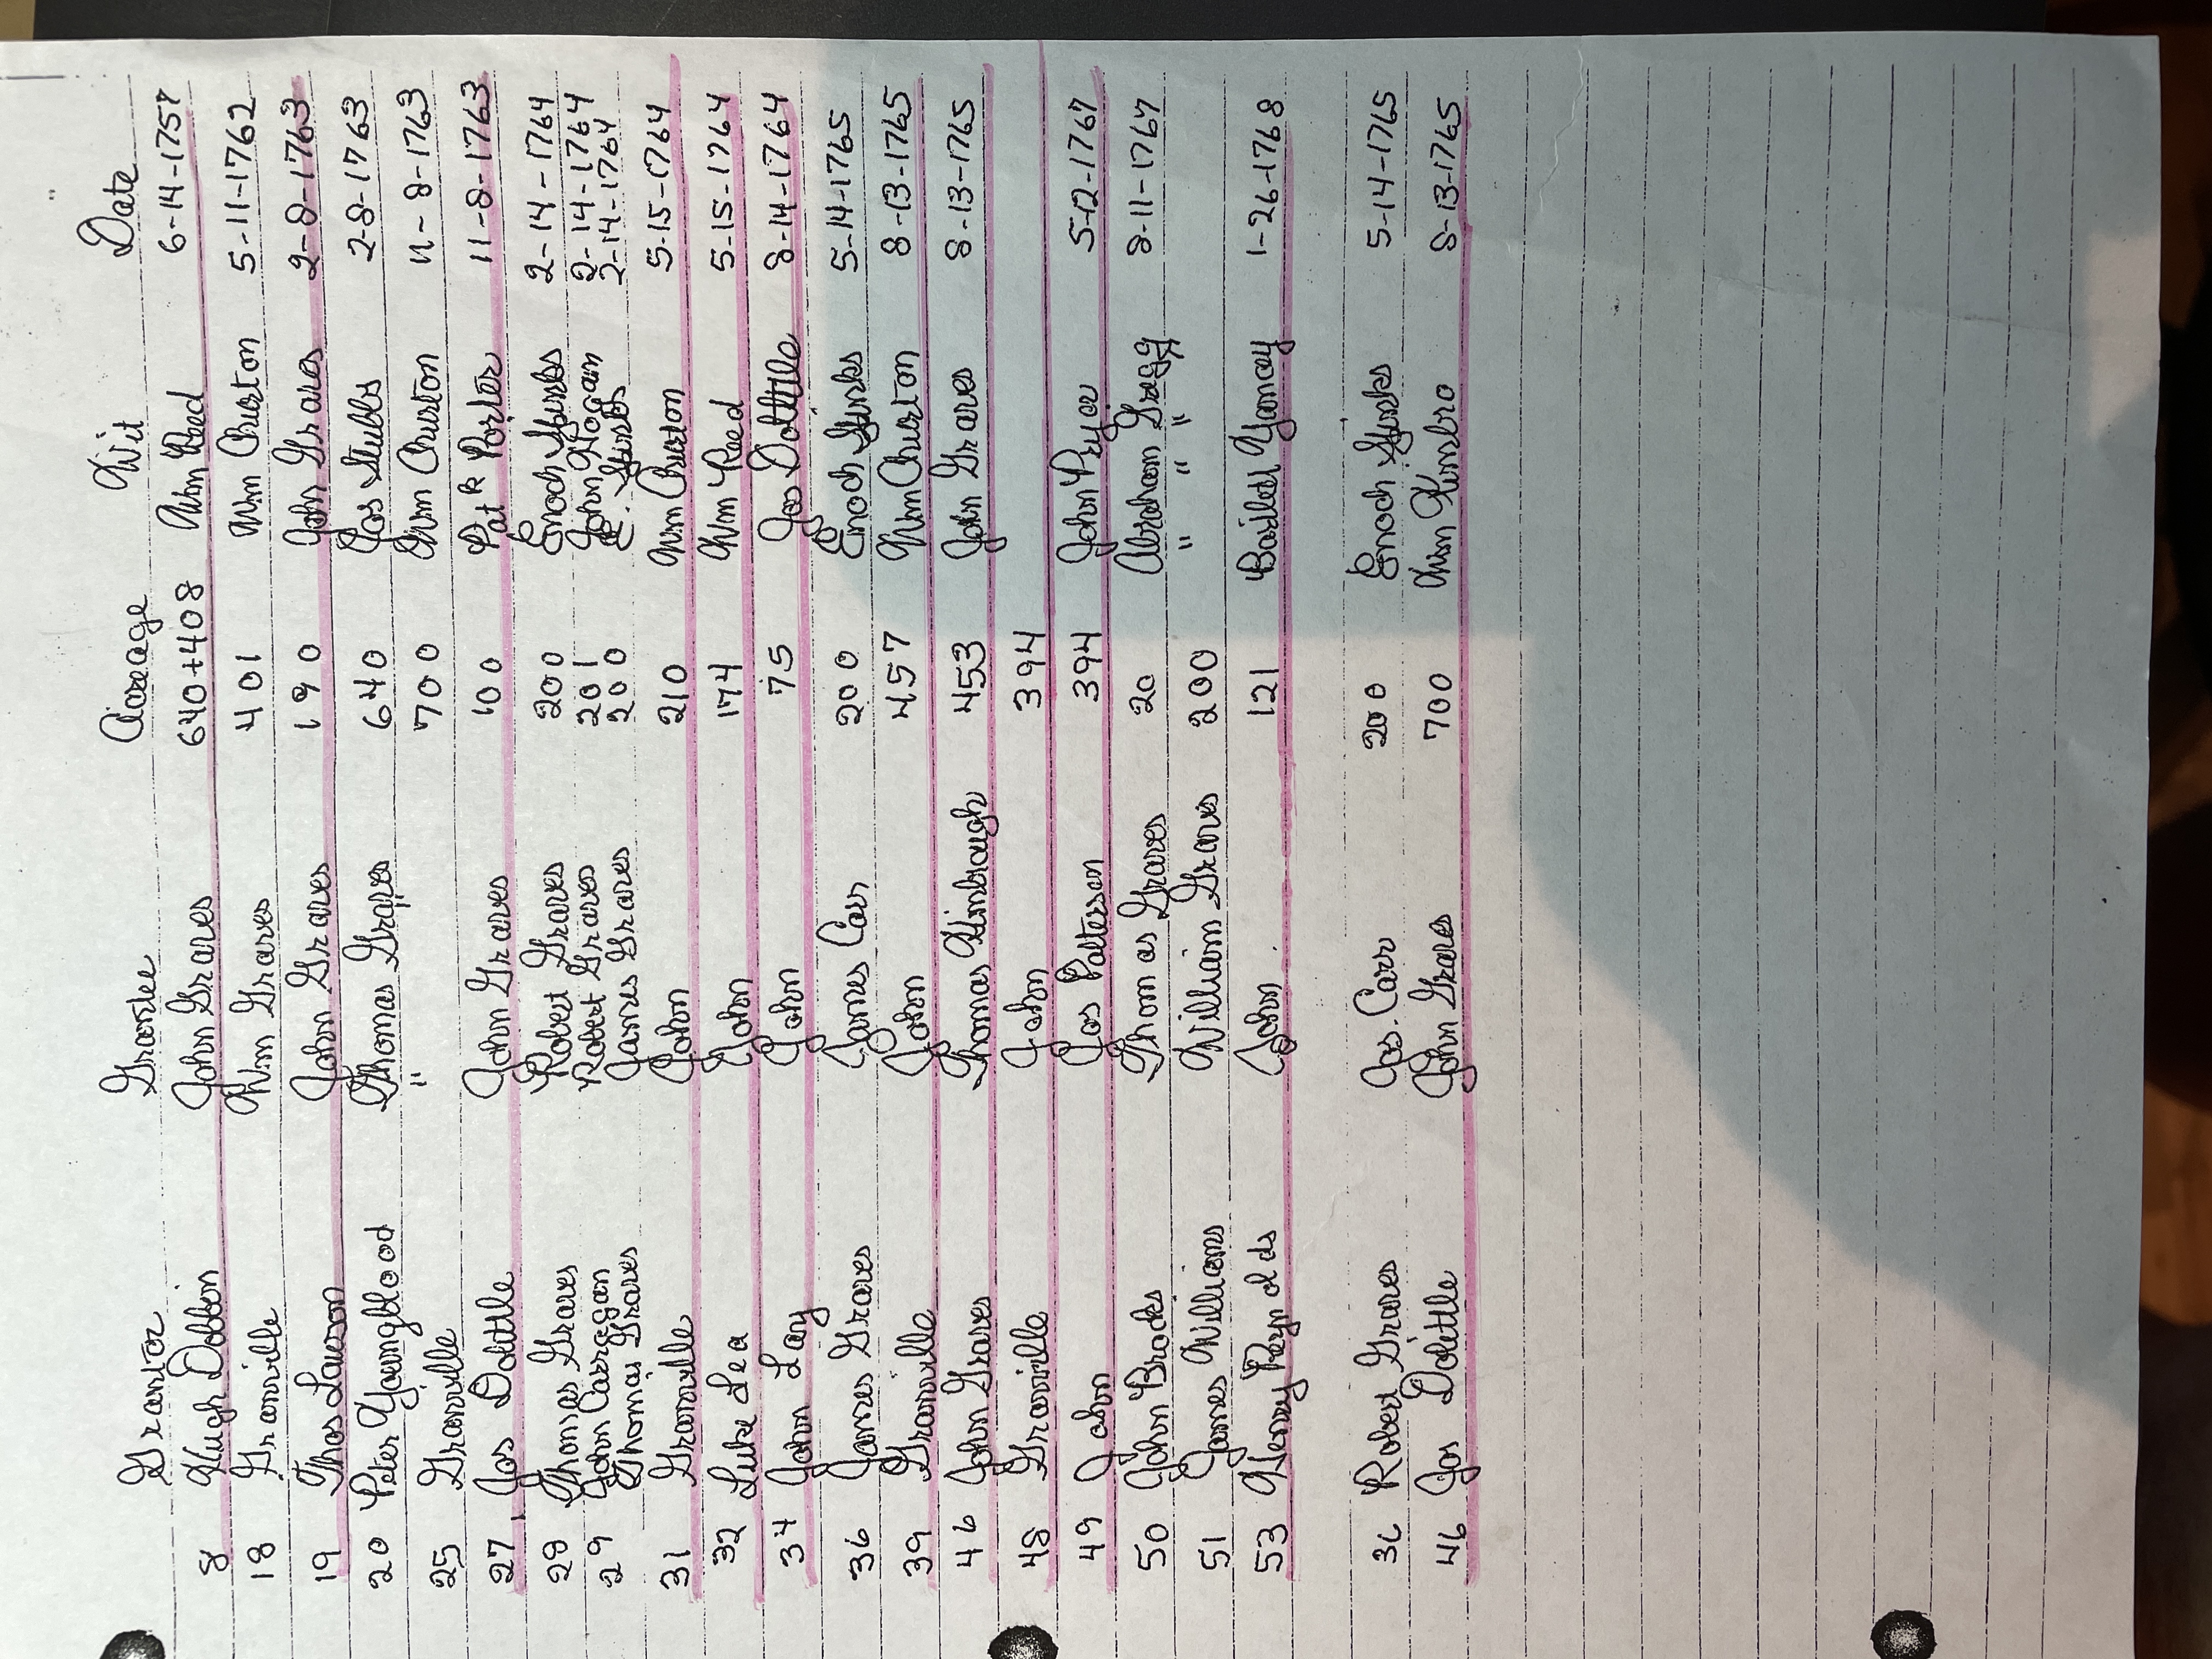 Grantor Grantee Acreage Wit Date
8 Hugh Dobbin John Graves 640+408 Wm Reed 6-14-1757
18 Granville Wm Graves 401 Wm Churton 5-11-1762
19 Thos Lawson John Graves 190 John Graves 2-8-1763
20 Peter Youngblood Thomas Graves 640 Jos Stubbs 2-8-1763
25 Granville " " 700 Wm Churton 11-8-1763
27 Jos Dolittle John Graves 100 Pat k Porter 11-8-1763
28 Thomas Graves Robert Graves 200 Enoch 2-14-1764
29 John Carregan Robert Graves 201 John Hogan 2-14-1764
Thomas Graves James Graves 200 E. 2-14-1764
31 Granville John 210 Wm Churton 5-15-1764
32 Luke Lea John 174 Wm Reed 5-15-1764
34 John Lay John 75 Jos Dolittle 8-14-1764
36 James Graves James Carr 200 Enoch 5-14-1765
39 Granville John 457 Wm Churton 8-13-1765
46 John Graves Thomas Kimbrough 453 John Graves 8-13-1765
48 Granville John 394
49 John Jos Patterson 394 John Pryor 5-12-1767
50 John Brooks Thomas Graves 20 Abraham Gragg 8-11-1767
51 James Williams William Graves 200 " " "
53 Henry Reynolds John 121 Bartlet Yancey 1-26-1768
36 Robert Graves Jas. Carr 200 Enoch 5-14-1765
46 Jos Dolittle John Graves 700 Wm Kimbro 8-13-1765